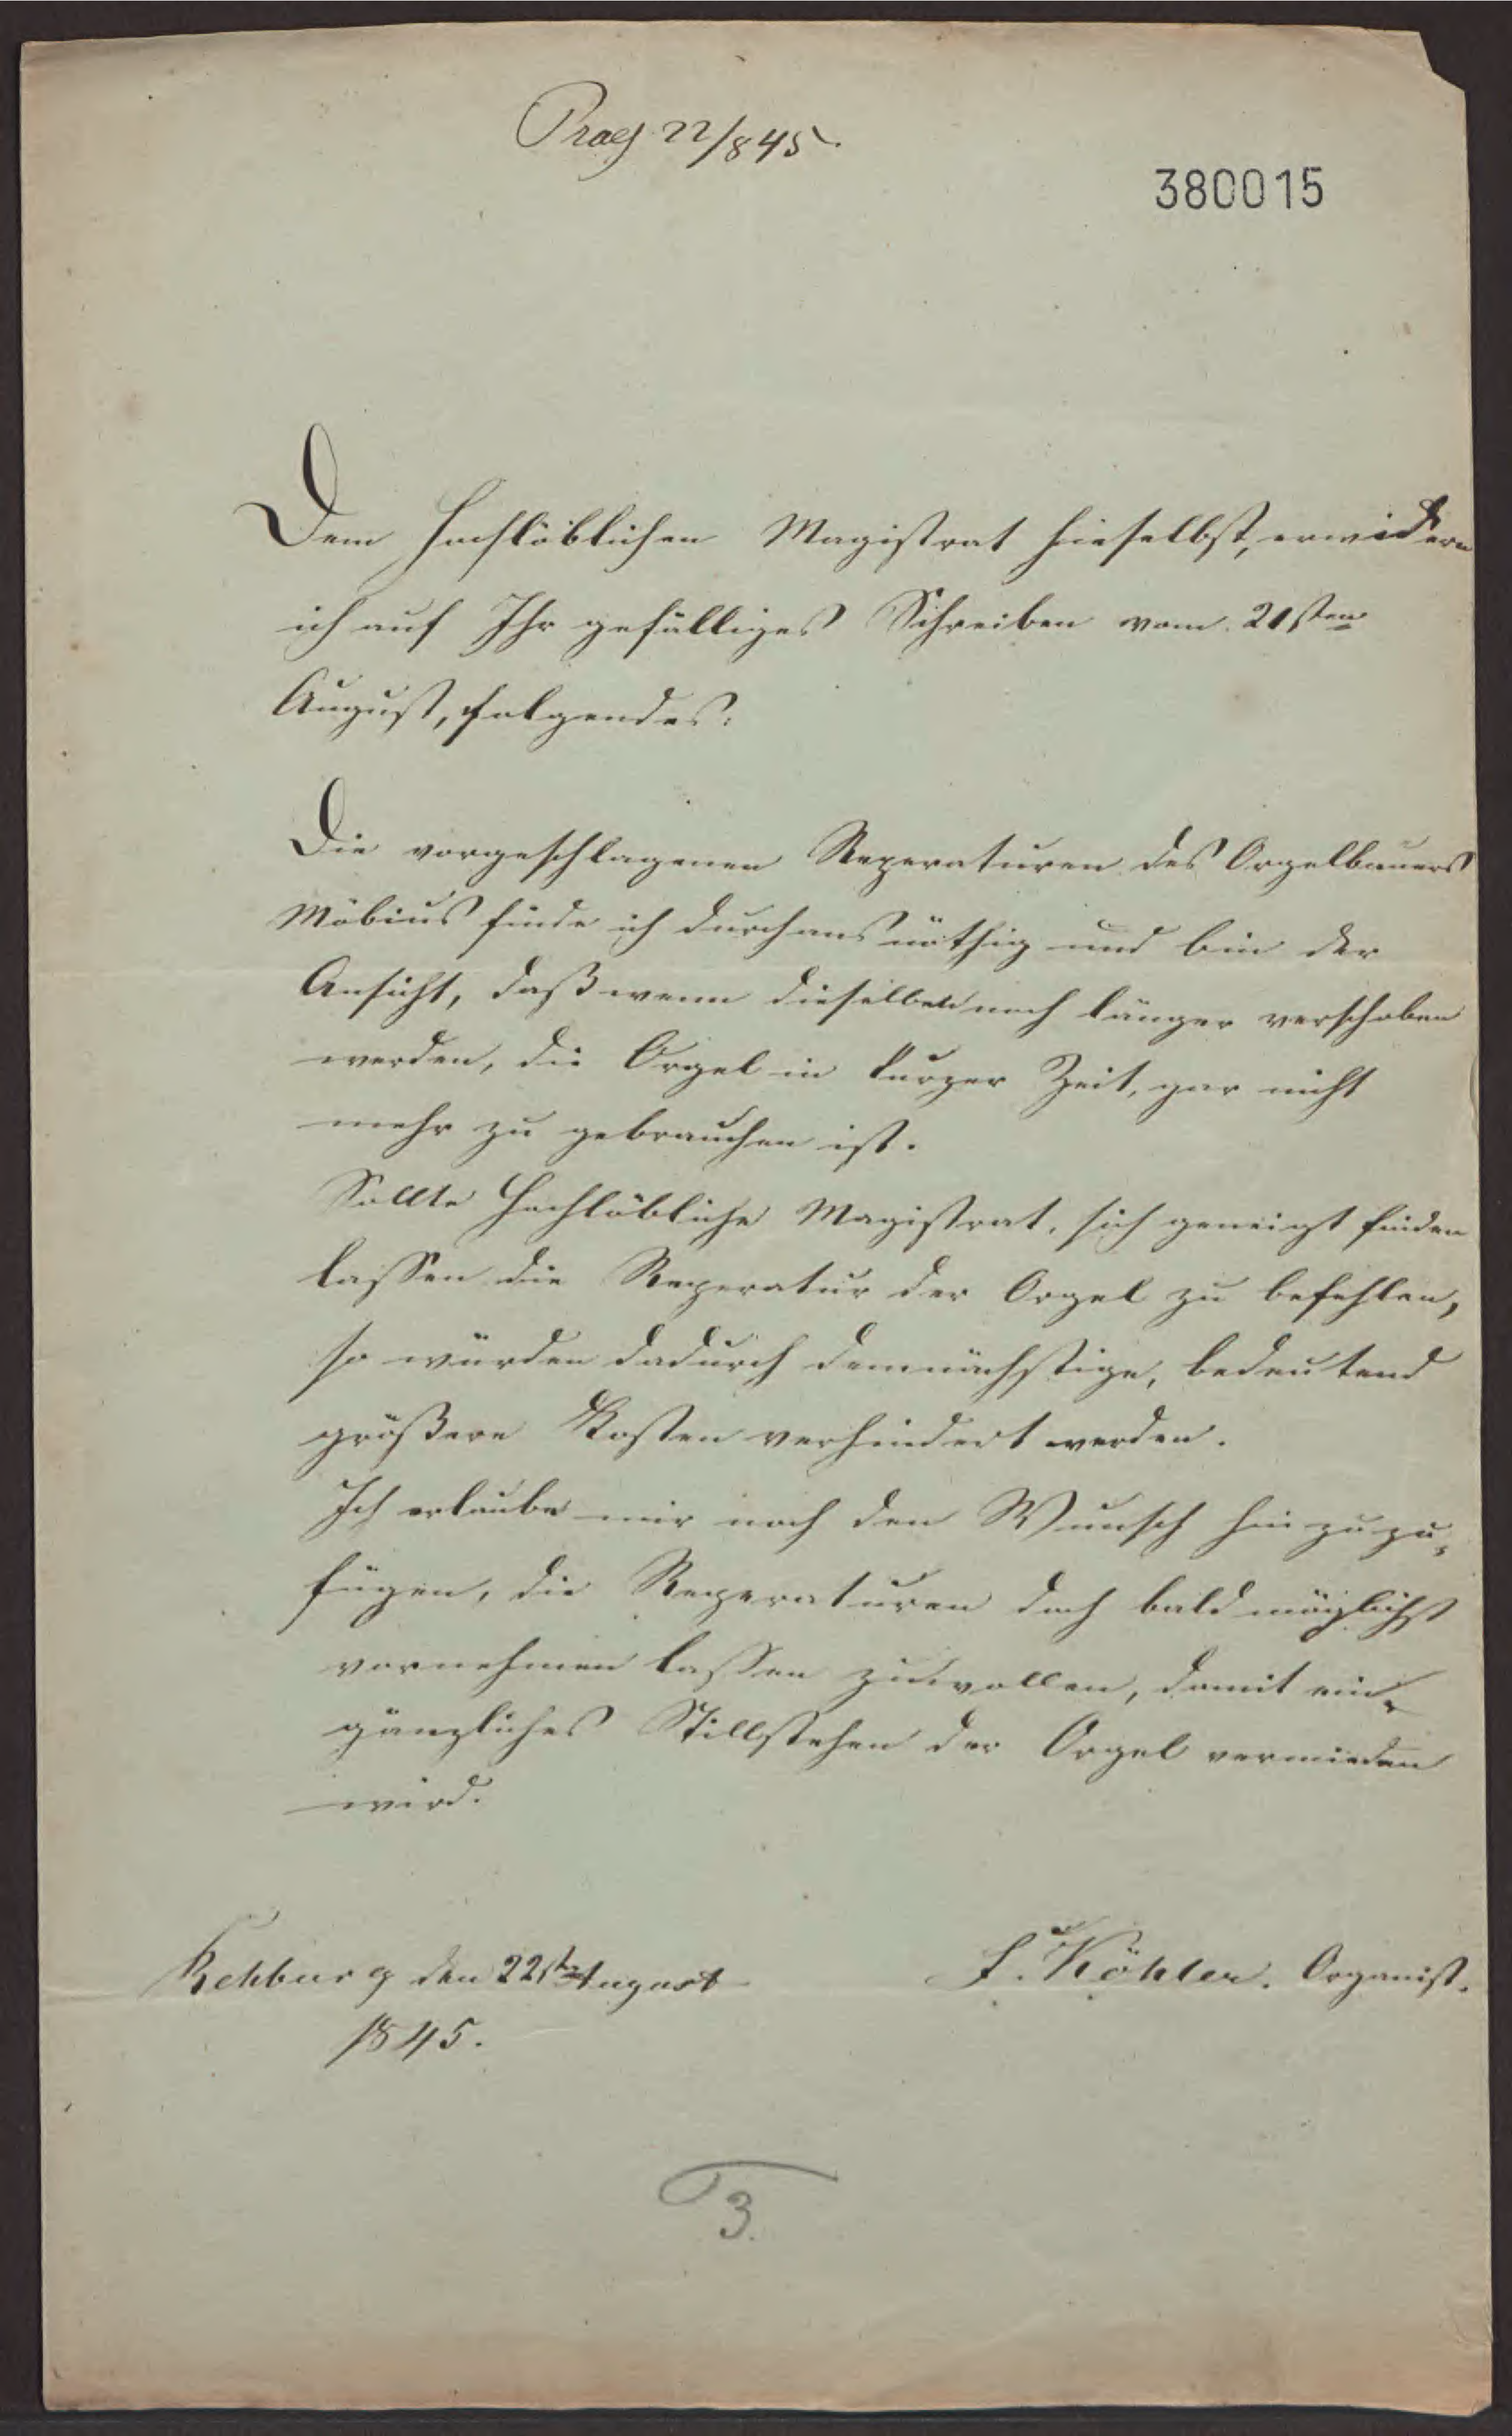 Praes 22/8 45.
380015
Dem Hochlöblichen Magistrat hieselbst, erwidern
ich auf Ihr gefälliges Schreiben vom 21sten
August, folgendes:
Die vorgeschlagenen Reperaturen des Orgelbauers
Möbius finde ich durchaus nöthig und bin der
Ansicht, daß wenn dieselben noch länger verschoben
werden, die Orgel in kurzer Zeit, gar nicht
mehr zu gebrauchen ist.
Sollte Hochlöbliche Magistrat, sich geneigt finden
lassen die Reperatur der Orgel zu befehlen,
so würden dadurch demnächstige, bedeutend
größere Kosten verhindert werden.
Ich erlaube mir noch den Wunsch hinzuzu-
fügen, die Reperaturen doch baldmöglichst
vornehmen lassen zu wollen, damit ein
gänzliches Stillstehen der Orgel vermieden
wird.
Rehburg den 22st August
1845.
F. Köhler. Organist.
3.